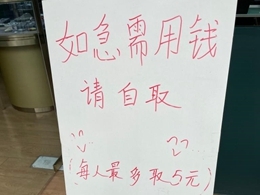 如急需用钱
请自取
(每人最多取5元)